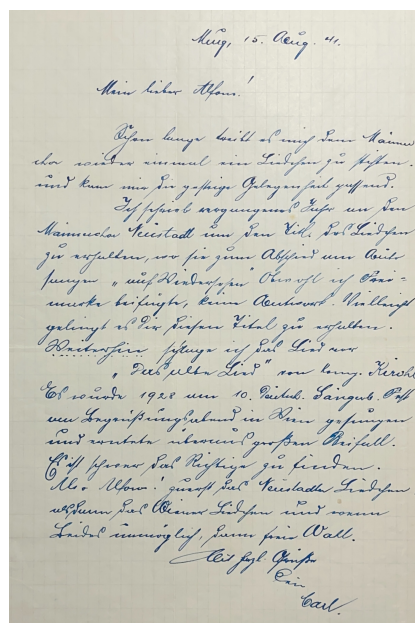 Mbg, 15. Aug. 41.
Mein lieber Alfons!
Schon lange treibt es mich dem Männer
chor wieder einmal ein Liedchen zu stiften.
und kam mir die gestrige Gelegenheit passend.
Ich schrieb vergangenes Jahr an den
Männerchor Neustadt um den Titel des Liedchen
zu erhalten, wo sie zum Abschied am
sangen „auf Wiedersehen" Obwohl ich Frei=
marke beifügte, keine Antwort. Vielleicht
gelingt es Dir diesen Titel zu erhalten.
Weiterhin schlage ich das Lied vor
„Das alte Lied" von Komp. Kirchl
Es wurde 1928 am 10. Deutsch. Sängerb. Fest
am Begrüßungsabend in Wien gesungen
und erntete überaus großen Beifall.
Es ist schwer das Richtige zu finden.
Also Alfons! zuerst das Neustadter Liedchen
alsdann das Wiener Liedchen und wenn
Beides unmöglich, dann freie Wahl.
Mit herzl. Grüße
Dein
Carl.